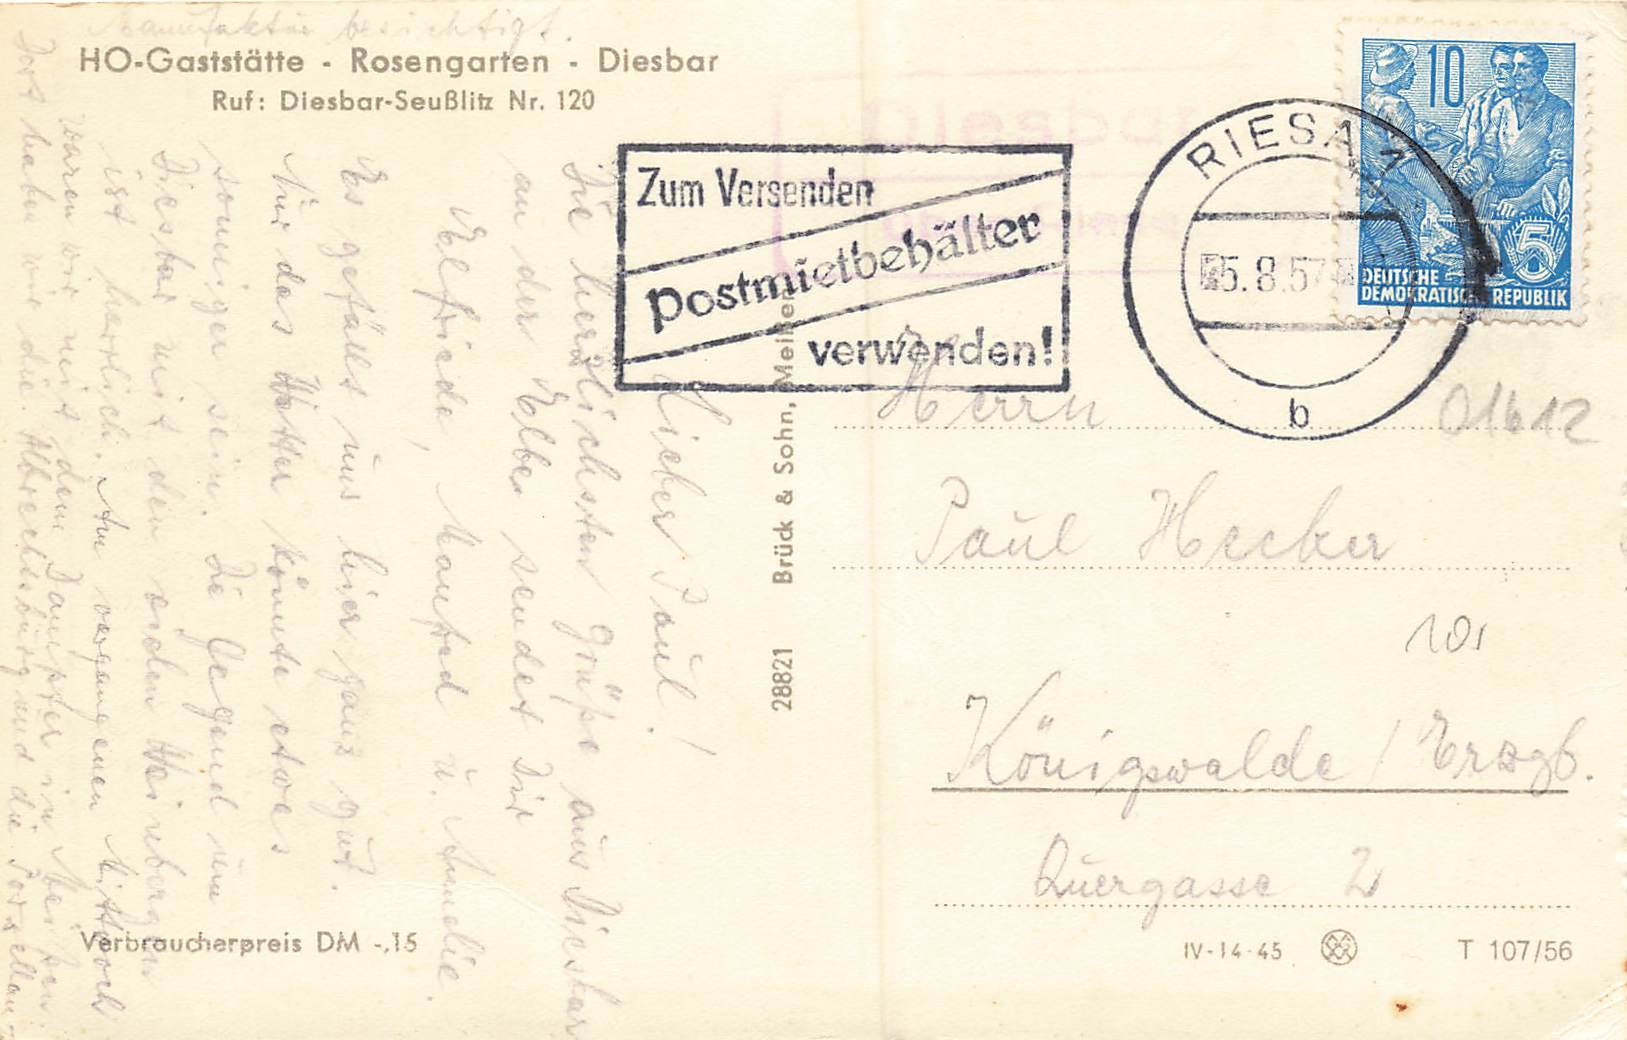 HO-Gaststätte - Rosengarten - Diesbar
Ruf: Diesbar-Seußlitz Nr. 120
Lieber Paul!
Die herzlichsten Grüße aus Diesbar
an der Elbe sendet Dir
Elfriede, Manfred u. Amelie.
Es gefällt uns hier ganz gut.
Nur das Wetter könnte etwas
sonniger sein. Die Gegend um
Diesbar mit den Weinbergen
ist herrlich. Am vergangenen Mittwoch
waren wir mit dem Dampfer in Meißen.
Dort haben wir die Albrechtsburg und die Porzellan-
Manufaktur besichtigt.
Verbraucherpreis DM -.15
28821 Brück & Sohn, Meißen
Zum Versenden
Postmietbehälter
verwenden!
Diesbar
RIESA 1
5.8.57
b
10
5
DEUTSCHE
DEMOKRATISCHE REPUBLIK
Herrn
01612
Paul Hecker
10.
Königswalde / Erzgb.
Quergasse 2
IV-14-45
T 107/56